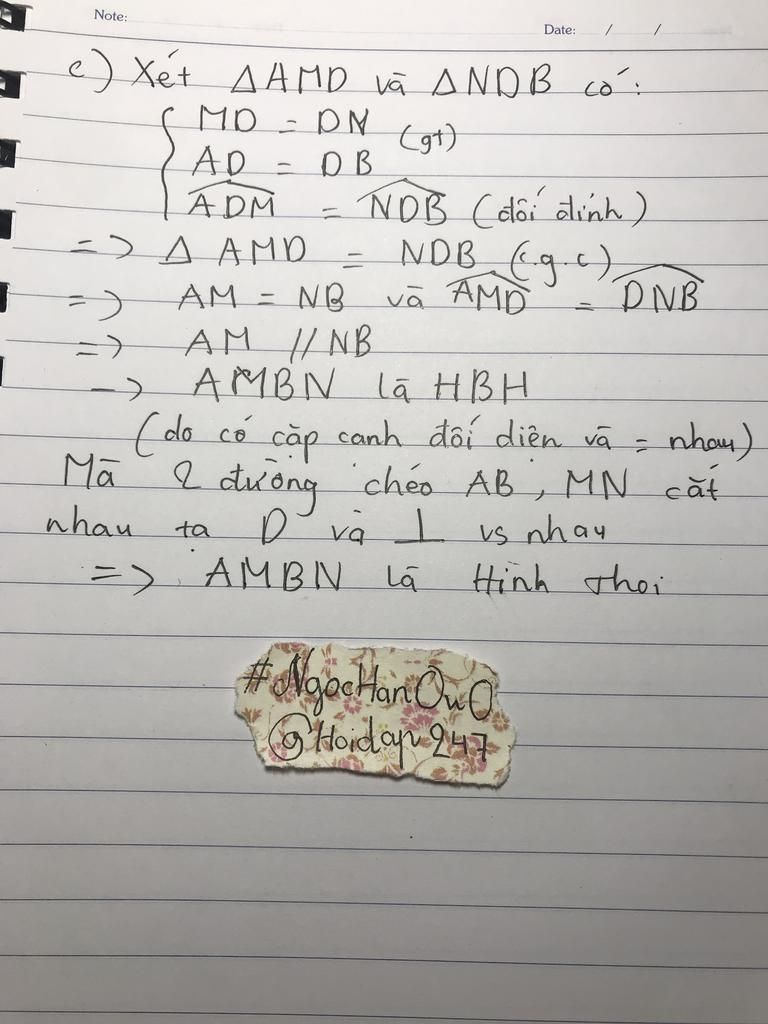 Note:
Date: / /
c) Xét ΔAMD và ΔNDB có:
MD = DN (gt)
AD = DB
ADM = NDB (đối đỉnh)
=> Δ AMD = NDB (c.g.c)
=> AM = NB và AMD = DNB
=> AM // NB
-> AMBN là HBH
(do có cặp cạnh đối diện và = nhau)
Mà 2 đường chéo AB, MN cắt
nhau ta D và ⊥ vs nhau
=> AMBN là Hình thoi
#NgocHanOuO
@Hoidap247